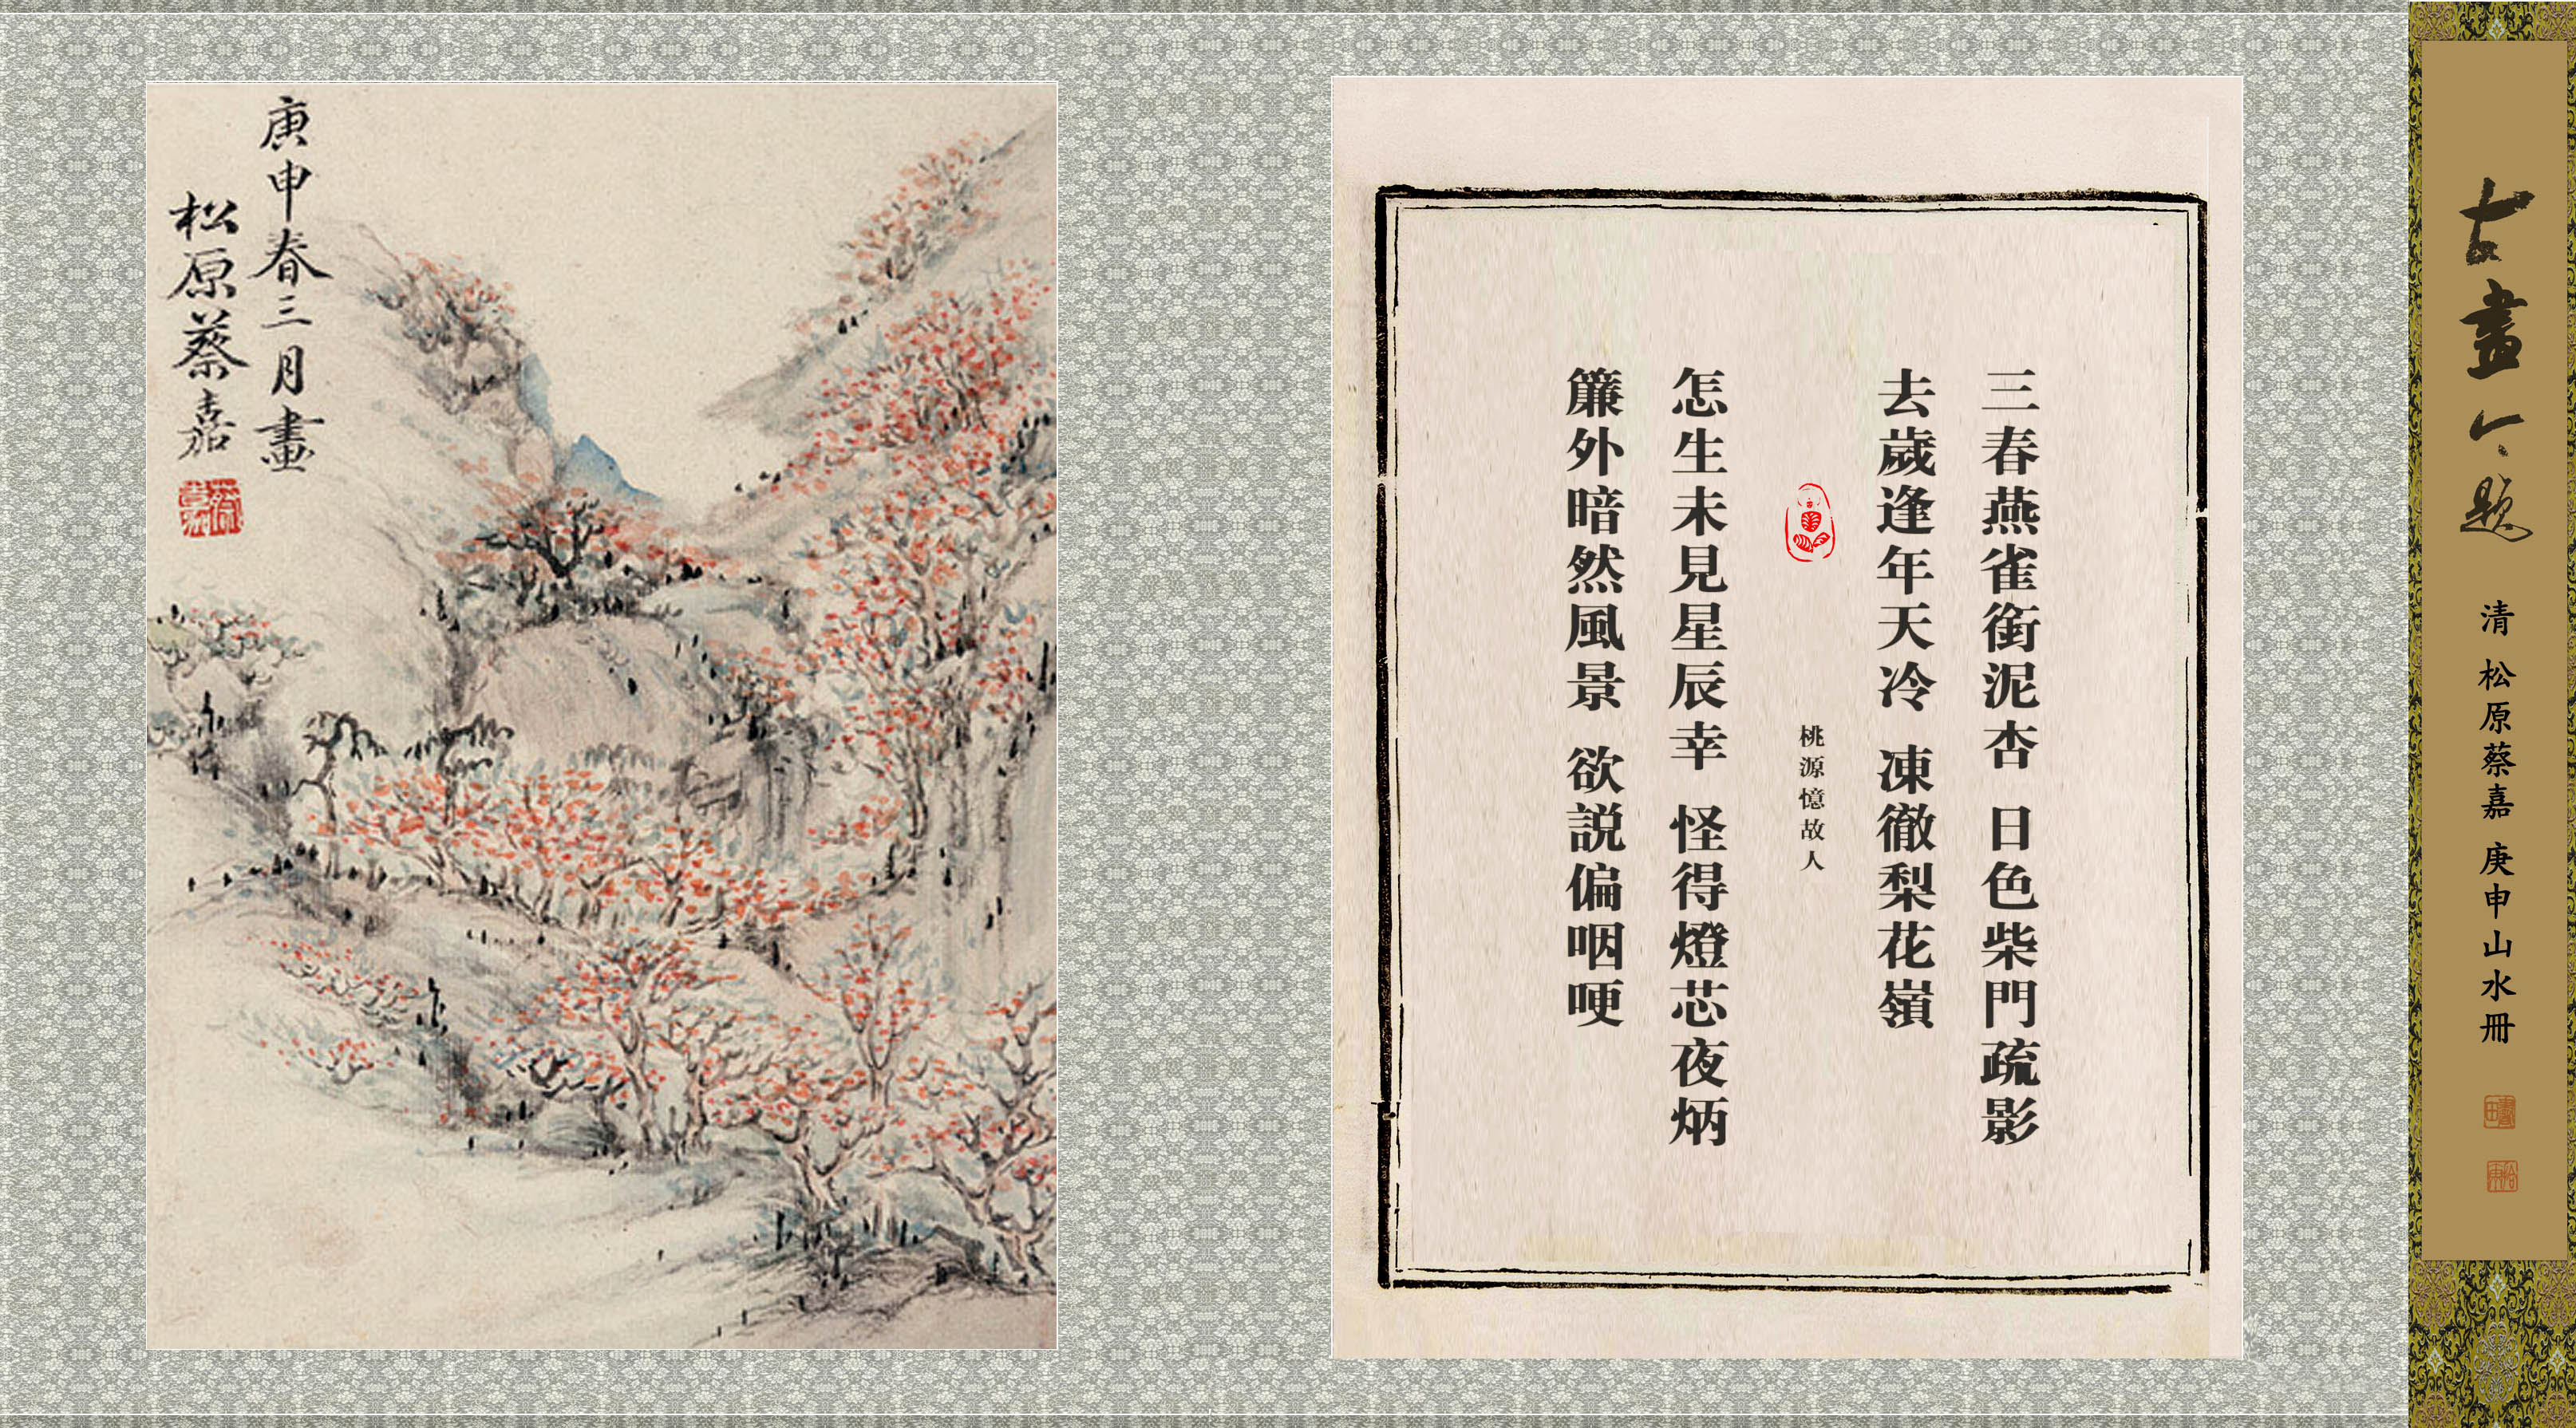 古畫今題
清 松原蔡嘉 庚申山水冊
三春燕雀銜泥杏 日色柴門疏影
去歲逢年天冷 凍徹梨花嶺
桃源憶故人
怎生未見星辰幸 怪得燈芯夜炳
簾外暗然風景 欲説偏咽哽
庚申春三月畫
松原蔡嘉
蔡嘉